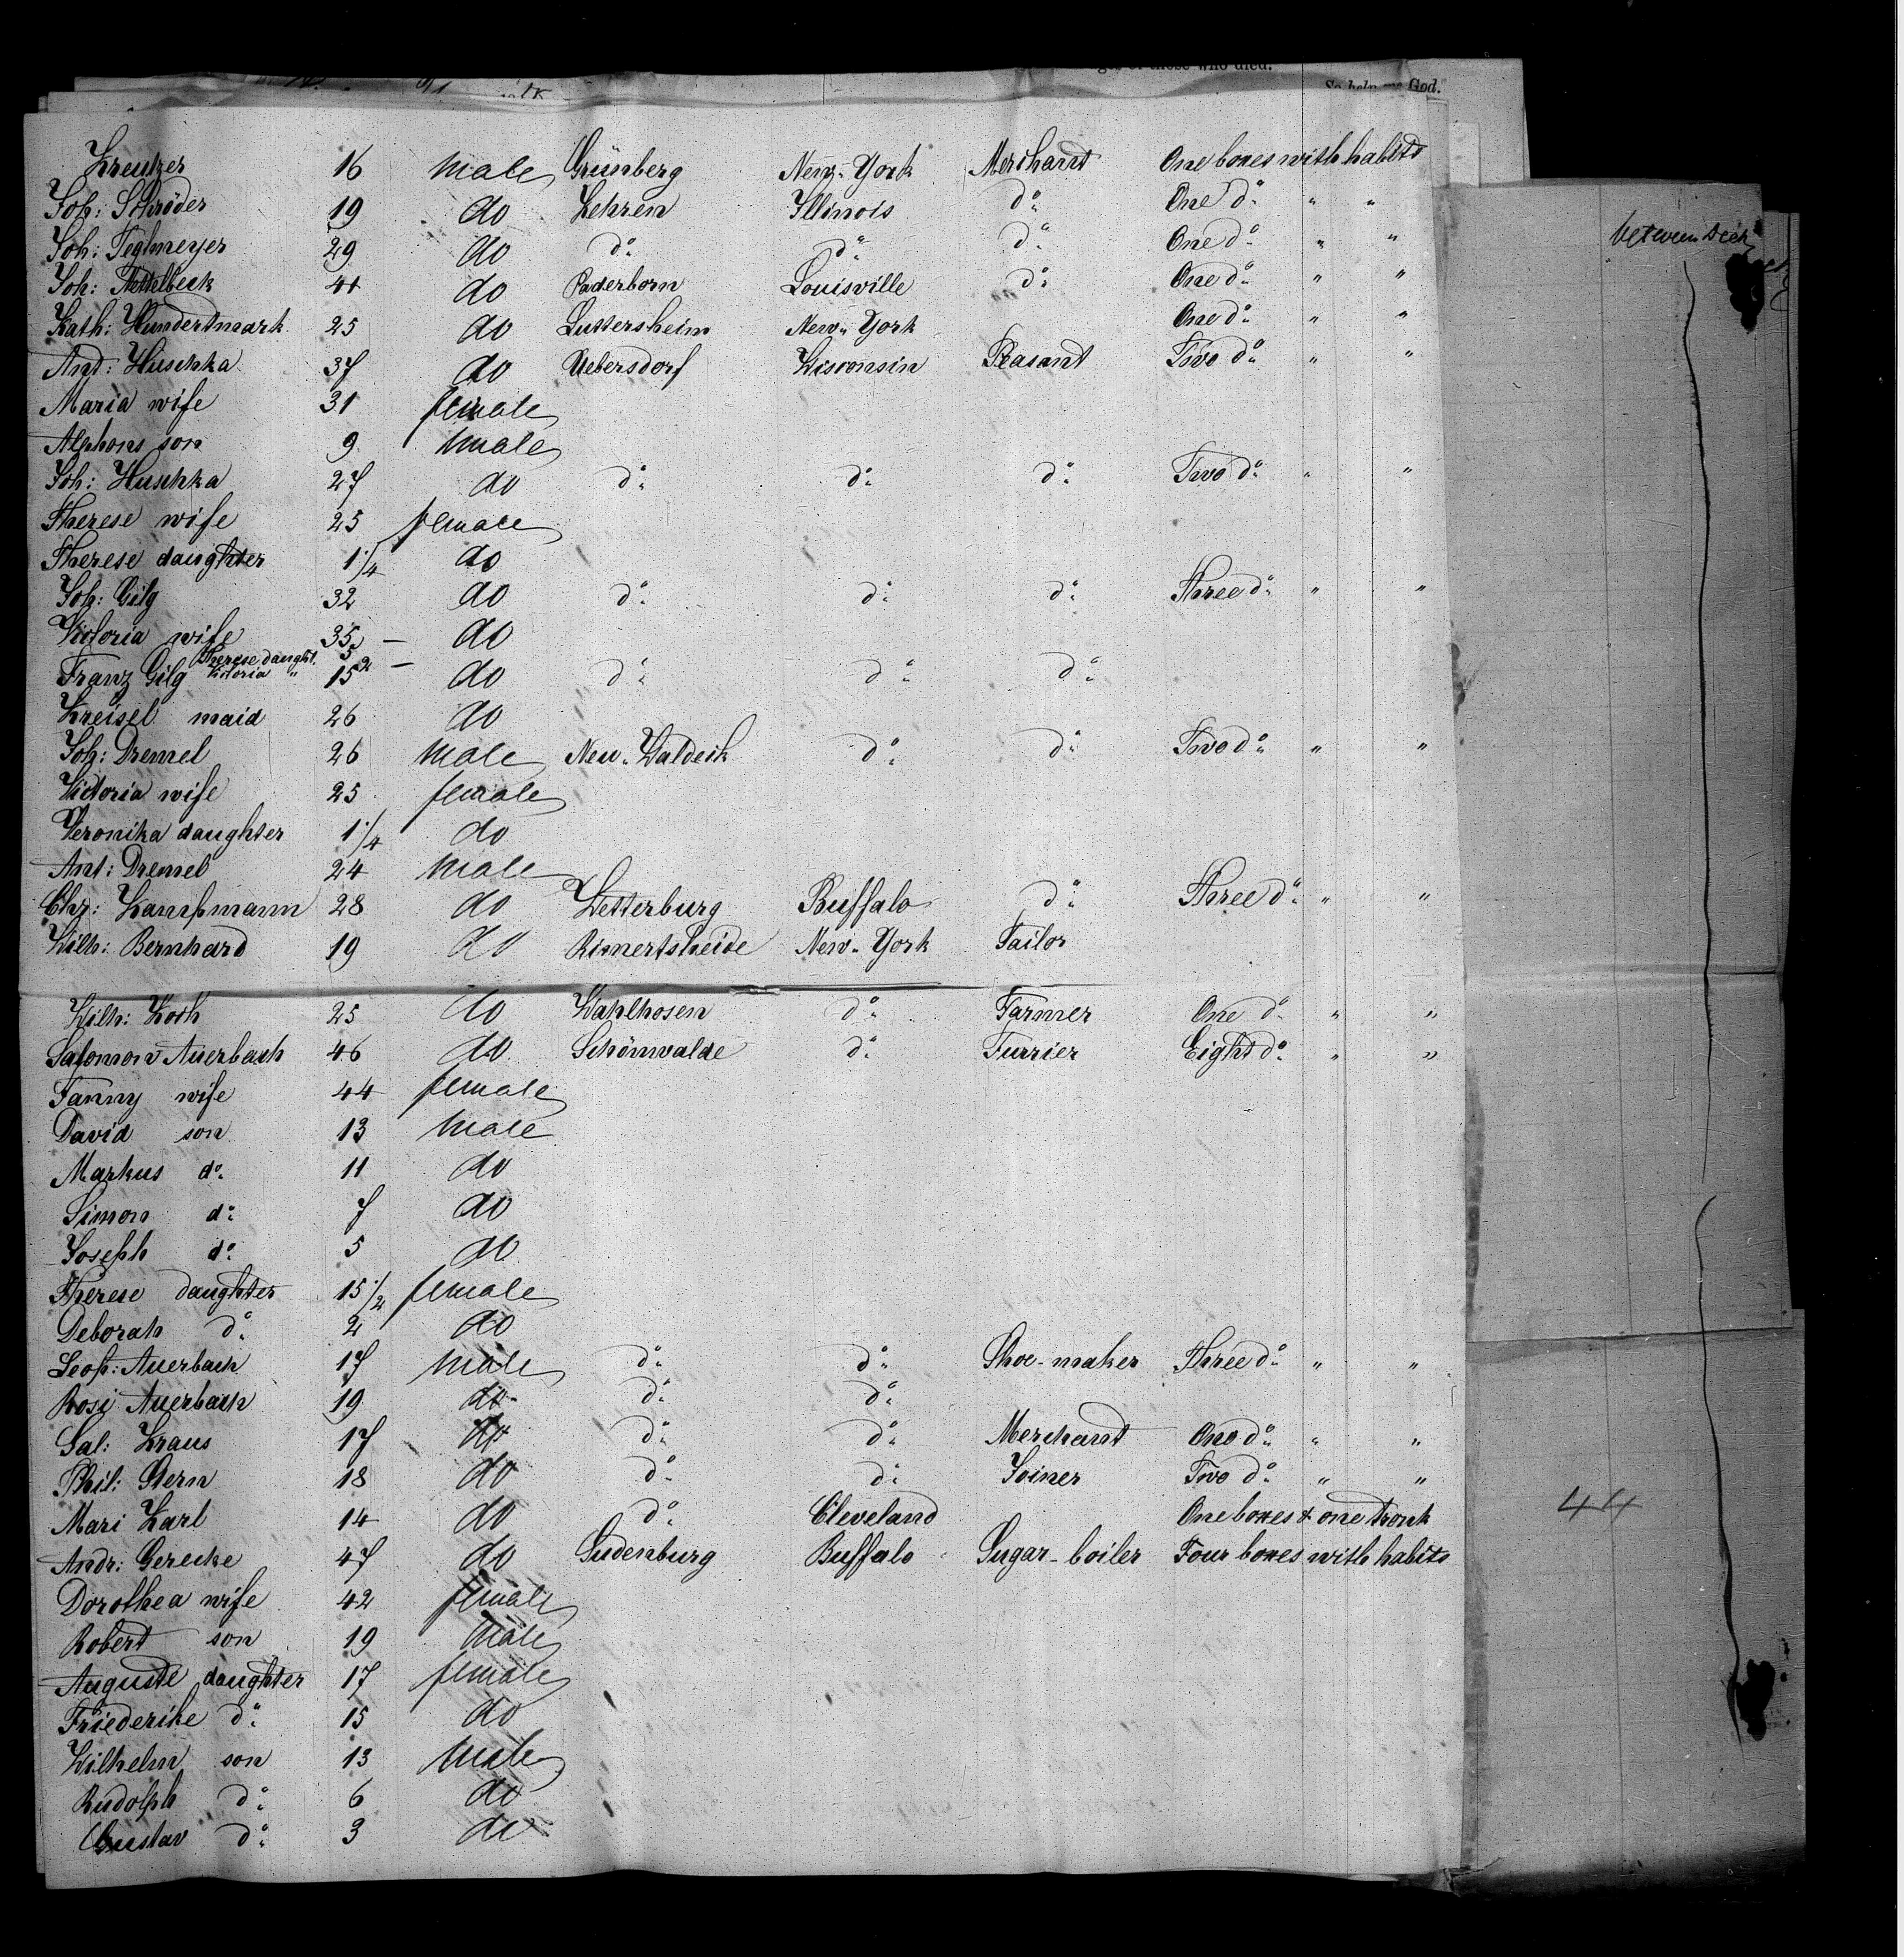 who died.
So help me God.
between Deck
Kreutzer 16 male Grünberg New-York Merchant One boxes with habits
Joh: Schröder 19 do Lehren Illinois do One do " "
Joh: Teglmeyer 29 do do do do One do " "
Joh: Nettelbeck 41 do Paderborn Louisville do One do " "
Kath: Hundertmark 25 do Luttersheim New-York One do " "
Ant: Huschka 37 do Uebersdorf Wisconsin Peasant Two do " "
Maria wife 31 female
Alphons son 9 male
Joh: Huschka 27 do do do do Two do " "
Therese wife 25 female
Therese daughter 1 1/4 do
Joh: Gilg 32 do do do do Three do " "
Victoria wife 35 — do
Therese daught. 5
Victoria " 2 —
Franz Gilg 15 do do do do
Kreisel maid 26 do
Joh: Dremel 26 male Neu-Waldeck do do Two do " "
Victoria wife 25 female
Veronika daughter 1 1/4 do
Ant: Dremel 24 male
Chr: Kampmann 28 do Wetterburg Buffalo do Three do " "
Wilh: Bernhard 19 do Rimertsheide New-York Tailor
Wilh: Koch 25 do Wahlhosen do Farmer One do " "
Salomon Auerbach 46 do Schönwalde do Furrier Eight do " "
Fanny wife 44 female
David son 13 male
Markus do 11 do
Simon do 7 do
Joseph do 5 do
Therese daughter 15 1/2 female
Deborah do 2 do
Leop: Auerbach 17 male do do Shoe-maker Three do " "
Rosi Auerbach 19 do do do
Sal: Kraus 17 do do do Merchant One do " "
Phil: Stern 18 do do do Joiner Two do " "
Mari Karl 14 do do Cleveland One boxes & one tronk
44
Andr: Gerecke 47 do Sudenburg Buffalo Sugar-boiler Four boxes with habits
Dorothea wife 42 female
Robert son 19 male
Auguste daughter 17 female
Friederike do 15 do
Wilhelm son 13 male
Rudolph do 6 do
Gustav do 3 do